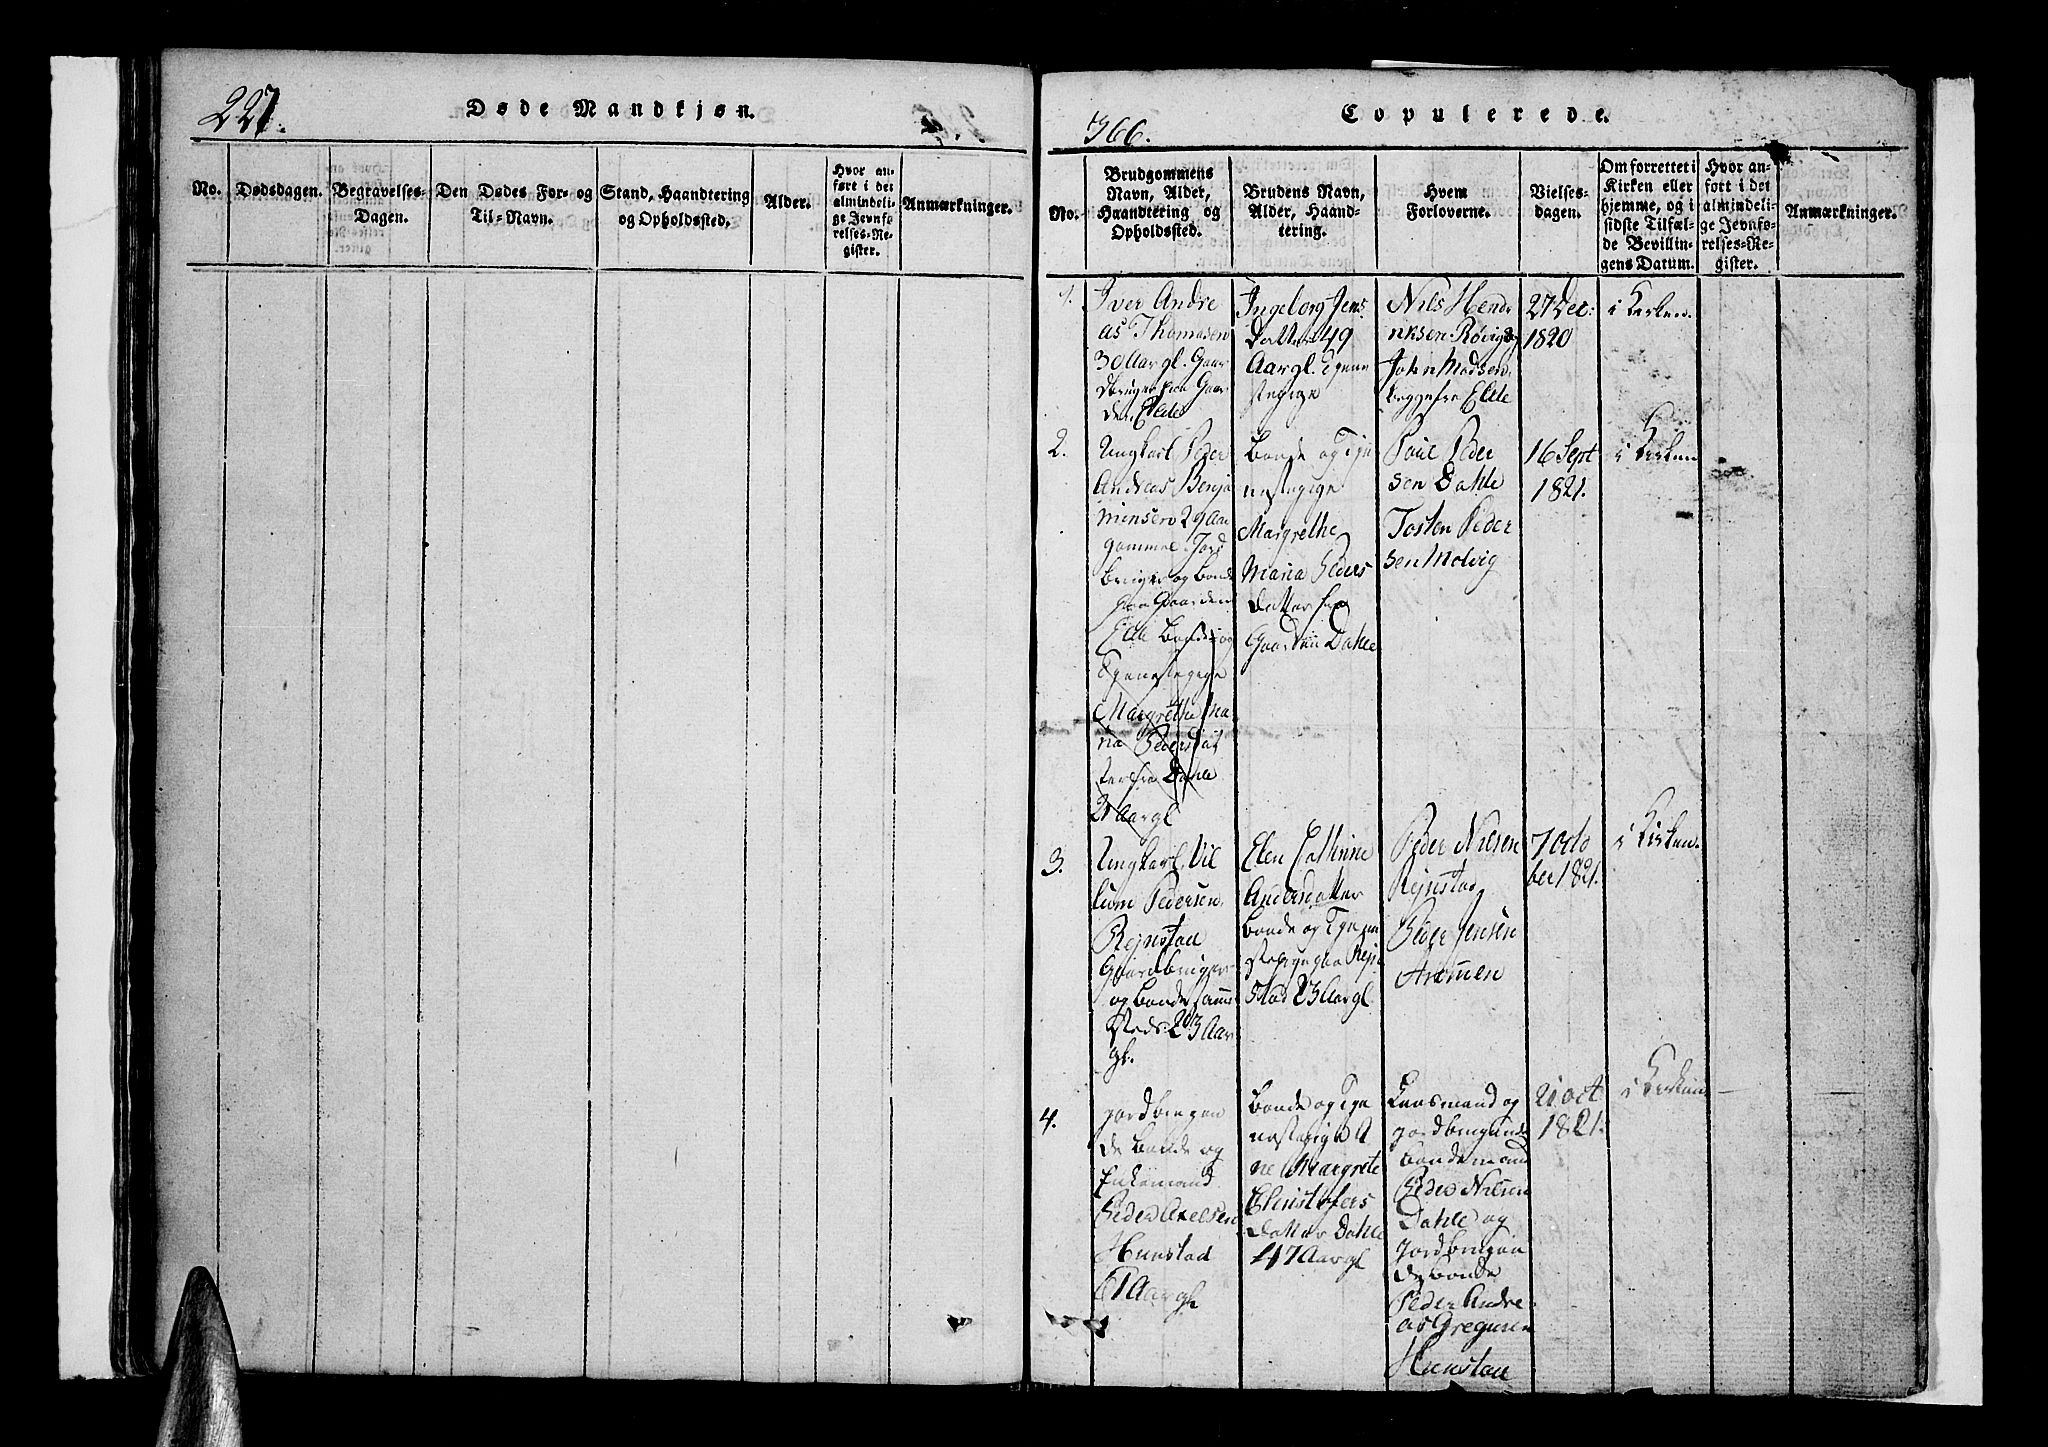 227.
Døde Mandkjøn.
No.
Dødsdagen.
Begravelses-
Dagen.
Den Dødes For- og
Til-Navn.
Stand, Haandtering
og Opholdssted.
Alder.
Hvor an-
ført i det
almindeli-
ge Jevnfø-
relses-Re-
gister.
Anmærkninger.
366.
Copulerede.
No.
Brudgommens
Navn, Alder,
Haandtering og
Opholdssted.
Brudens Navn,
Alder, Haand-
tering.
Hvem
Forloverne.
Vielses-
dagen.
Om forrettet i
Kirken eller
hjemme, og i
sidste Tilfæl-
de Bevillin-
gens Datum.
Hvor an-
ført i det
almindeli-
ge Jevnfø-
relses-Re-
gister.
Anmærkninger.
1.
Iver Andre
as Thomasen
30 Aar gl. Gaar
dbruger paa Gaar
den Elde
Ingeborg Jens
Datter 49
Aar gl.
Nils Hendr
iksen Røvig og
John Madsen
begge fra Elde
27 Dec:
1820
i Kirken.
2.
Ungkarl Peder
Andreas Benja
minsen 29 Aar
gammel Jord
bruger og Bonde
paa Gaarden
Elde Bonde og
Tjenestepige
Margrethe Ma
ria Pedersdat
ter fra Dahle
21 Aar gl
Bonde og Tje
nestepige
Margrethe
Maria Peders
datter fra
Gaarden Dahle
Poul Peder
sen Dahle
Tosten Peder
sen Molvig
16 Sept
1821.
i Kirken
3.
Ungkarl Vil
lum Pedersen
Rejnstad
Gaardbruger
og Bonde sam̅e
steds 23 Aar
gl.
Elen Cathrine
Andersdatter
Bonde og Tjene
stepige paa Rejn
stad 23 Aar gl
Peder Nielsen
Rejnstad
Peder Jensen
7 Octo
ber 1821.
i Kirken.
4.
Jordbrugen
de Bonde og
Enkemand
Peder Axelsen
Hunstad
61 Aar gl
Bonde og Tje
nestepige A
ne Margrete
Christofers
datter Dahle
47 Aar gl
Laasmand og
Jordbrugende
Bondemand
Peder Nilsen
Dahle og
Jordbrugen
de Bonde
Peder Andre
as Gregusen
Hunstad
21 Oct
1821.
i Kirken